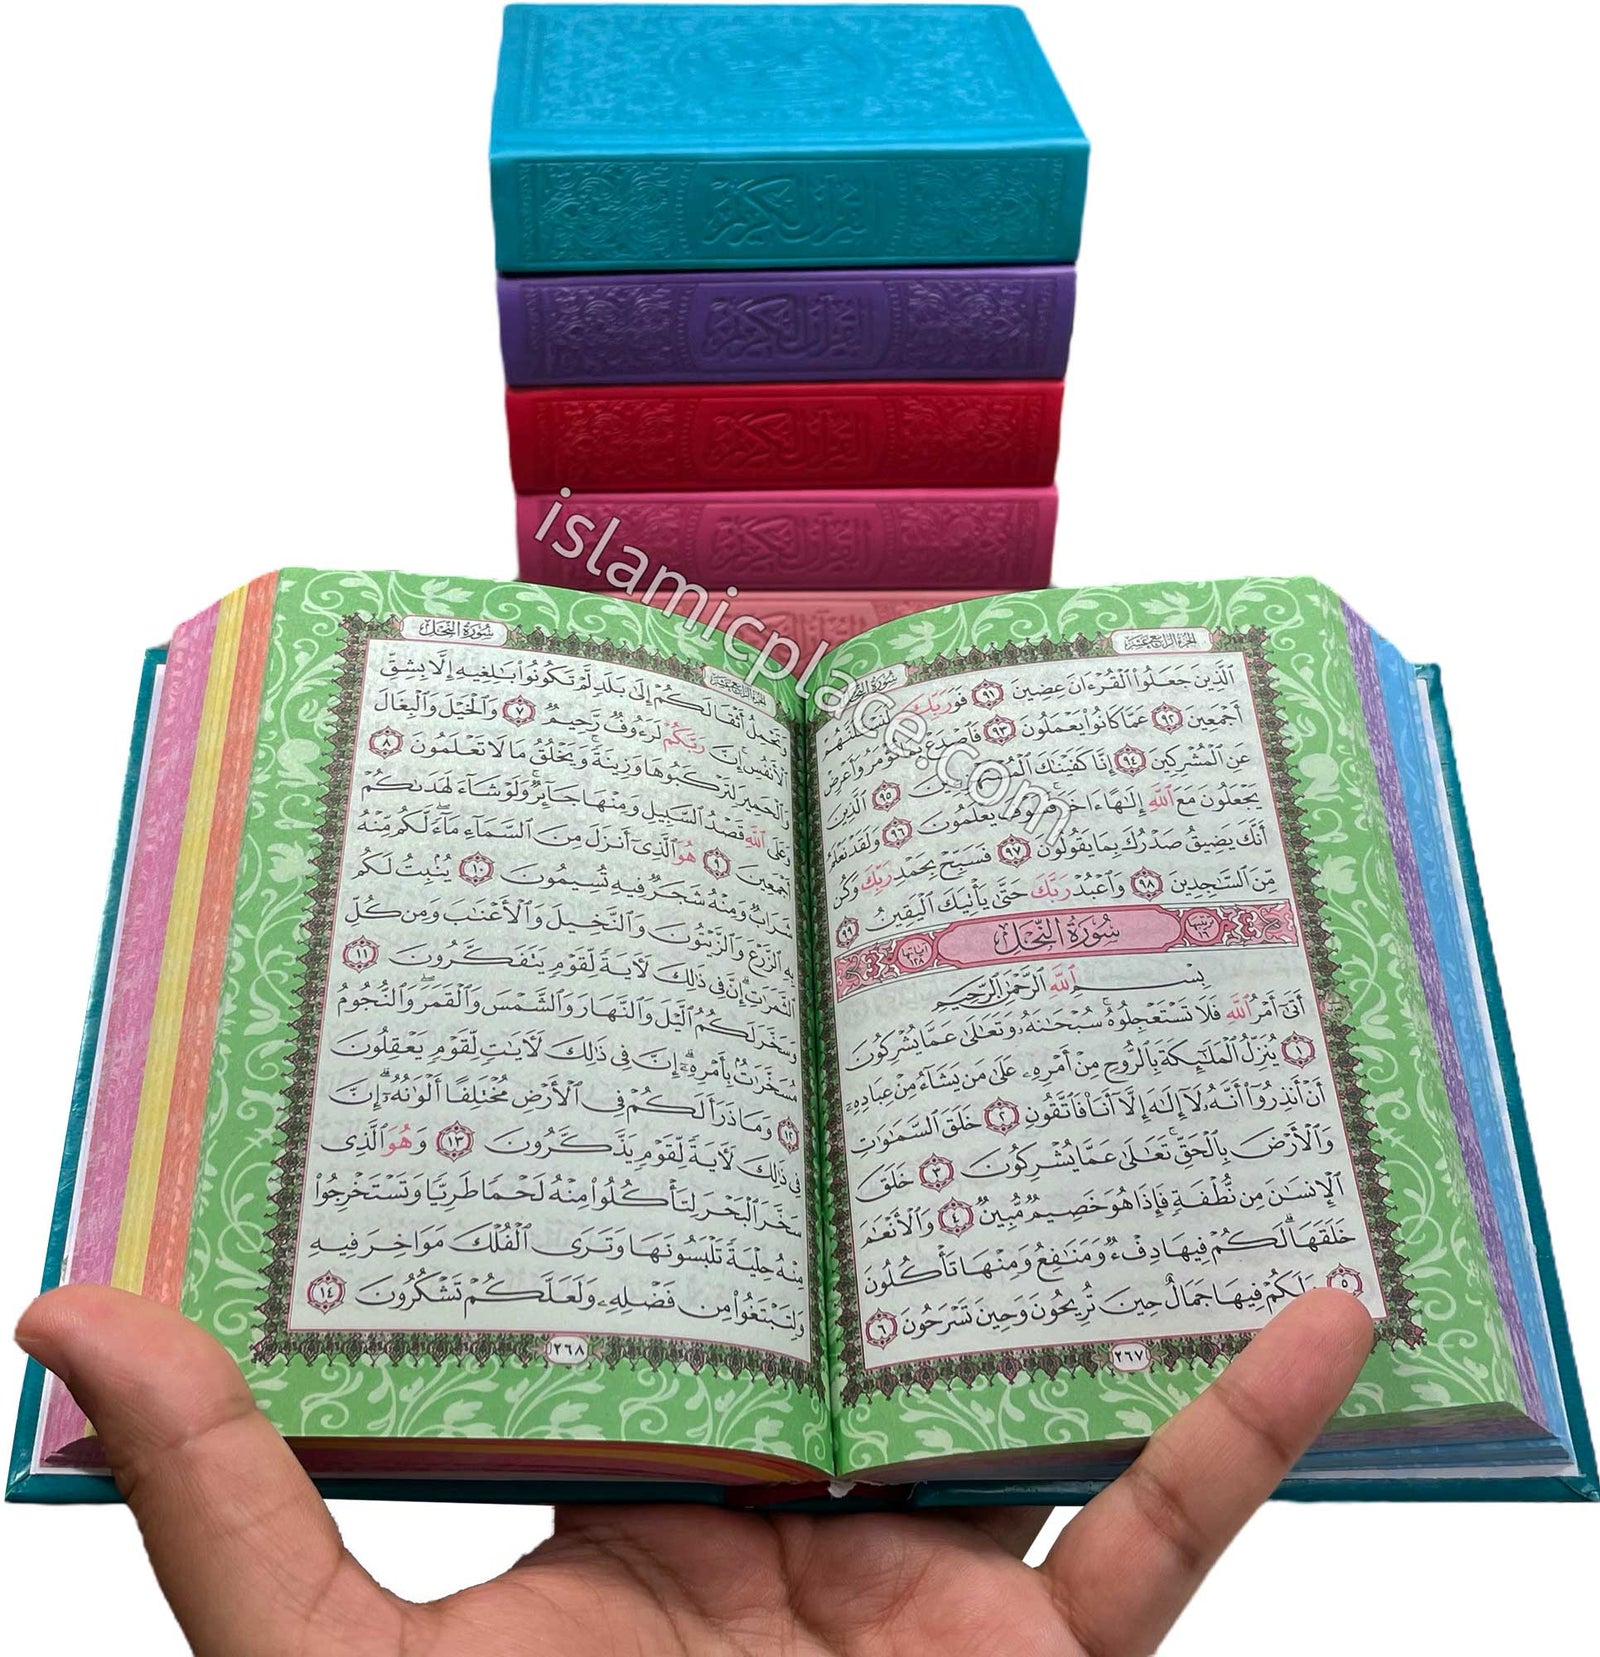 القرآن الكريم
القرآن الكريم
القرآن الكريم
القرآن الكريم
islamicplace.com
الجزء الرابع عشر
سورة
ٱلَّذِينَ جَعَلُوا۟ ٱلْقُرْءَانَ عِضِينَ ٩١ فَوَرَبِّكَ لَنَسْـَٔلَنَّهُمْ
أَجْمَعِينَ ٩٢ عَمَّا كَانُوا۟ يَعْمَلُونَ ٩٣ فَٱصْدَعْ بِمَا تُؤْمَرُ وَأَعْرِضْ
عَنِ ٱلْمُشْرِكِينَ ٩٤ إِنَّا كَفَيْنَٰكَ ٩٥ ٱلَّذِينَ
يَجْعَلُونَ مَعَ ٱللَّهِ إِلَٰهًا ءَاخَرَ فَسَوْفَ يَعْلَمُونَ ٩٦ وَلَقَدْ نَعْلَمُ
أَنَّكَ يَضِيقُ صَدْرُكَ بِمَا يَقُولُونَ ٩٧ فَسَبِّحْ بِحَمْدِ رَبِّكَ وَكُن
مِّنَ ٱلسَّٰجِدِينَ ٩٨ وَٱعْبُدْ رَبَّكَ حَتَّىٰ يَأْتِيَكَ ٱلْيَقِينُ ٩٩
ترتيبها ١٦ سُورَةُ النَّحْلِ آياتها ١٢٨
بِسْمِ ٱللَّهِ ٱلرَّحْمَٰنِ ٱلرَّحِيمِ
أَتَىٰٓ أَمْرُ ٱللَّهِ فَلَا تَسْتَعْجِلُوهُ ۚ سُبْحَٰنَهُۥ وَتَعَٰلَىٰ عَمَّا يُشْرِكُونَ
١ يُنَزِّلُ ٱلْمَلَٰٓئِكَةَ بِٱلرُّوحِ مِنْ أَمْرِهِۦ عَلَىٰ مَن يَشَآءُ مِنْ عِبَادِهِۦٓ
أَنْ أَنذِرُوٓا۟ أَنَّهُۥ لَآ إِلَٰهَ إِلَّآ أَنَا۠ فَٱتَّقُونِ ٢ خَلَقَ ٱلسَّمَٰوَٰتِ
وَٱلْأَرْضَ بِٱلْحَقِّ ۚ تَعَٰلَىٰ عَمَّا يُشْرِكُونَ ٣ خَلَقَ
ٱلْإِنسَٰنَ مِن نُّطْفَةٍ فَإِذَا هُوَ خَصِيمٌ مُّبِينٌ ٤ وَٱلْأَنْعَٰمَ
خَلَقَهَا ۗ لَكُمْ فِيهَا دِفْءٌ وَمَنَٰفِعُ وَمِنْهَا تَأْكُلُونَ
٥ وَلَكُمْ فِيهَا جَمَالٌ حِينَ تُرِيحُونَ وَحِينَ تَسْرَحُونَ ٦
٢٦٧
الجزء الرابع عشر
سُورَةُ النَّحْلِ
وَتَحْمِلُ أَثْقَالَكُمْ إِلَىٰ بَلَدٍ لَّمْ تَكُونُوا۟ بَٰلِغِيهِ إِلَّا بِشِقِّ
ٱلْأَنفُسِ ۚ إِنَّ رَبَّكُمْ لَرَءُوفٌ رَّحِيمٌ ٧ وَٱلْخَيْلَ وَٱلْبِغَالَ
وَٱلْحَمِيرَ لِتَرْكَبُوهَا وَزِينَةً ۚ وَيَخْلُقُ مَا لَا تَعْلَمُونَ ٨
وَعَلَى ٱللَّهِ قَصْدُ ٱلسَّبِيلِ وَمِنْهَا جَآئِرٌ ۚ وَلَوْ شَآءَ لَهَدَىٰكُمْ
أَجْمَعِينَ ٩ هُوَ ٱلَّذِىٓ أَنزَلَ مِنَ ٱلسَّمَآءِ مَآءً ۖ لَّكُم مِّنْهُ
شَرَابٌ وَمِنْهُ شَجَرٌ فِيهِ تُسِيمُونَ ١٠ يُنۢبِتُ لَكُم
بِهِ ٱلزَّرْعَ وَٱلزَّيْتُونَ وَٱلنَّخِيلَ وَٱلْأَعْنَٰبَ وَمِن كُلِّ
ٱلثَّمَرَٰتِ ۗ إِنَّ فِى ذَٰلِكَ لَءَايَةً لِّقَوْمٍ يَتَفَكَّرُونَ ١١
وَسَخَّرَ لَكُمُ ٱلَّيْلَ وَٱلنَّهَارَ وَٱلشَّمْسَ وَٱلْقَمَرَ ۖ وَٱلنُّجُومُ
مُسَخَّرَٰتٌۢ بِأَمْرِهِۦٓ ۗ إِنَّ فِى ذَٰلِكَ لَءَايَٰتٍ لِّقَوْمٍ يَعْقِلُونَ
١٢ وَمَا ذَرَأَ لَكُمْ فِى ٱلْأَرْضِ مُخْتَلِفًا أَلْوَٰنُهُۥٓ ۗ إِنَّ
فِى ذَٰلِكَ لَءَايَةً لِّقَوْمٍ يَذَّكَّرُونَ ١٣ وَهُوَ ٱلَّذِى
سَخَّرَ ٱلْبَحْرَ لِتَأْكُلُوا۟ مِنْهُ لَحْمًا طَرِيًّا وَتَسْتَخْرِجُوا۟
مِنْهُ حِلْيَةً تَلْبَسُونَهَا وَتَرَى ٱلْفُلْكَ مَوَاخِرَ فِيهِ
وَلِتَبْتَغُوا۟ مِن فَضْلِهِۦ وَلَعَلَّكُمْ تَشْكُرُونَ ١٤
٢٦٨